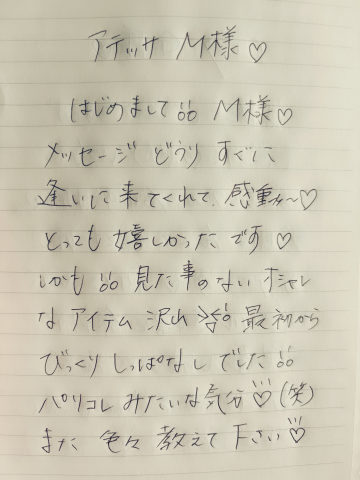 アテッサ M様♡
はじめまして!!! M様♡
メッセージ どうり すぐに
逢いに来てくれて、感動か〜♡
とっても 嬉しかった です♡
しかも !!! 見た事のない オシャレ
な アイテム 沢山 最初から
びっくり しっぱなし でした !!!
パリコレ みたいな気分♡(笑)
また 色々 教えて 下さい♡